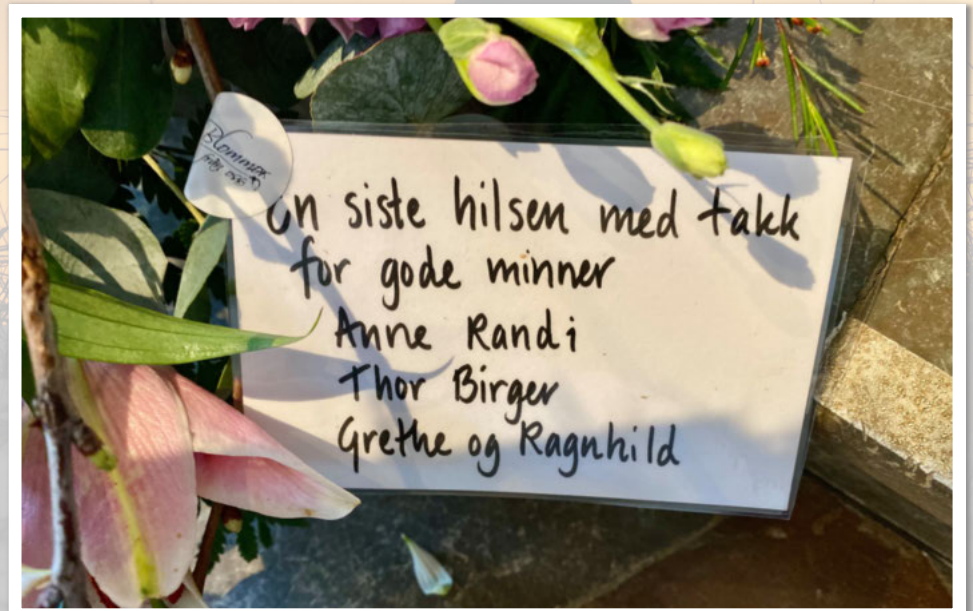 Blommor
En siste hilsen med takk
for gode minner
Anne Randi
Thor Birger
Grethe og Ragnhild